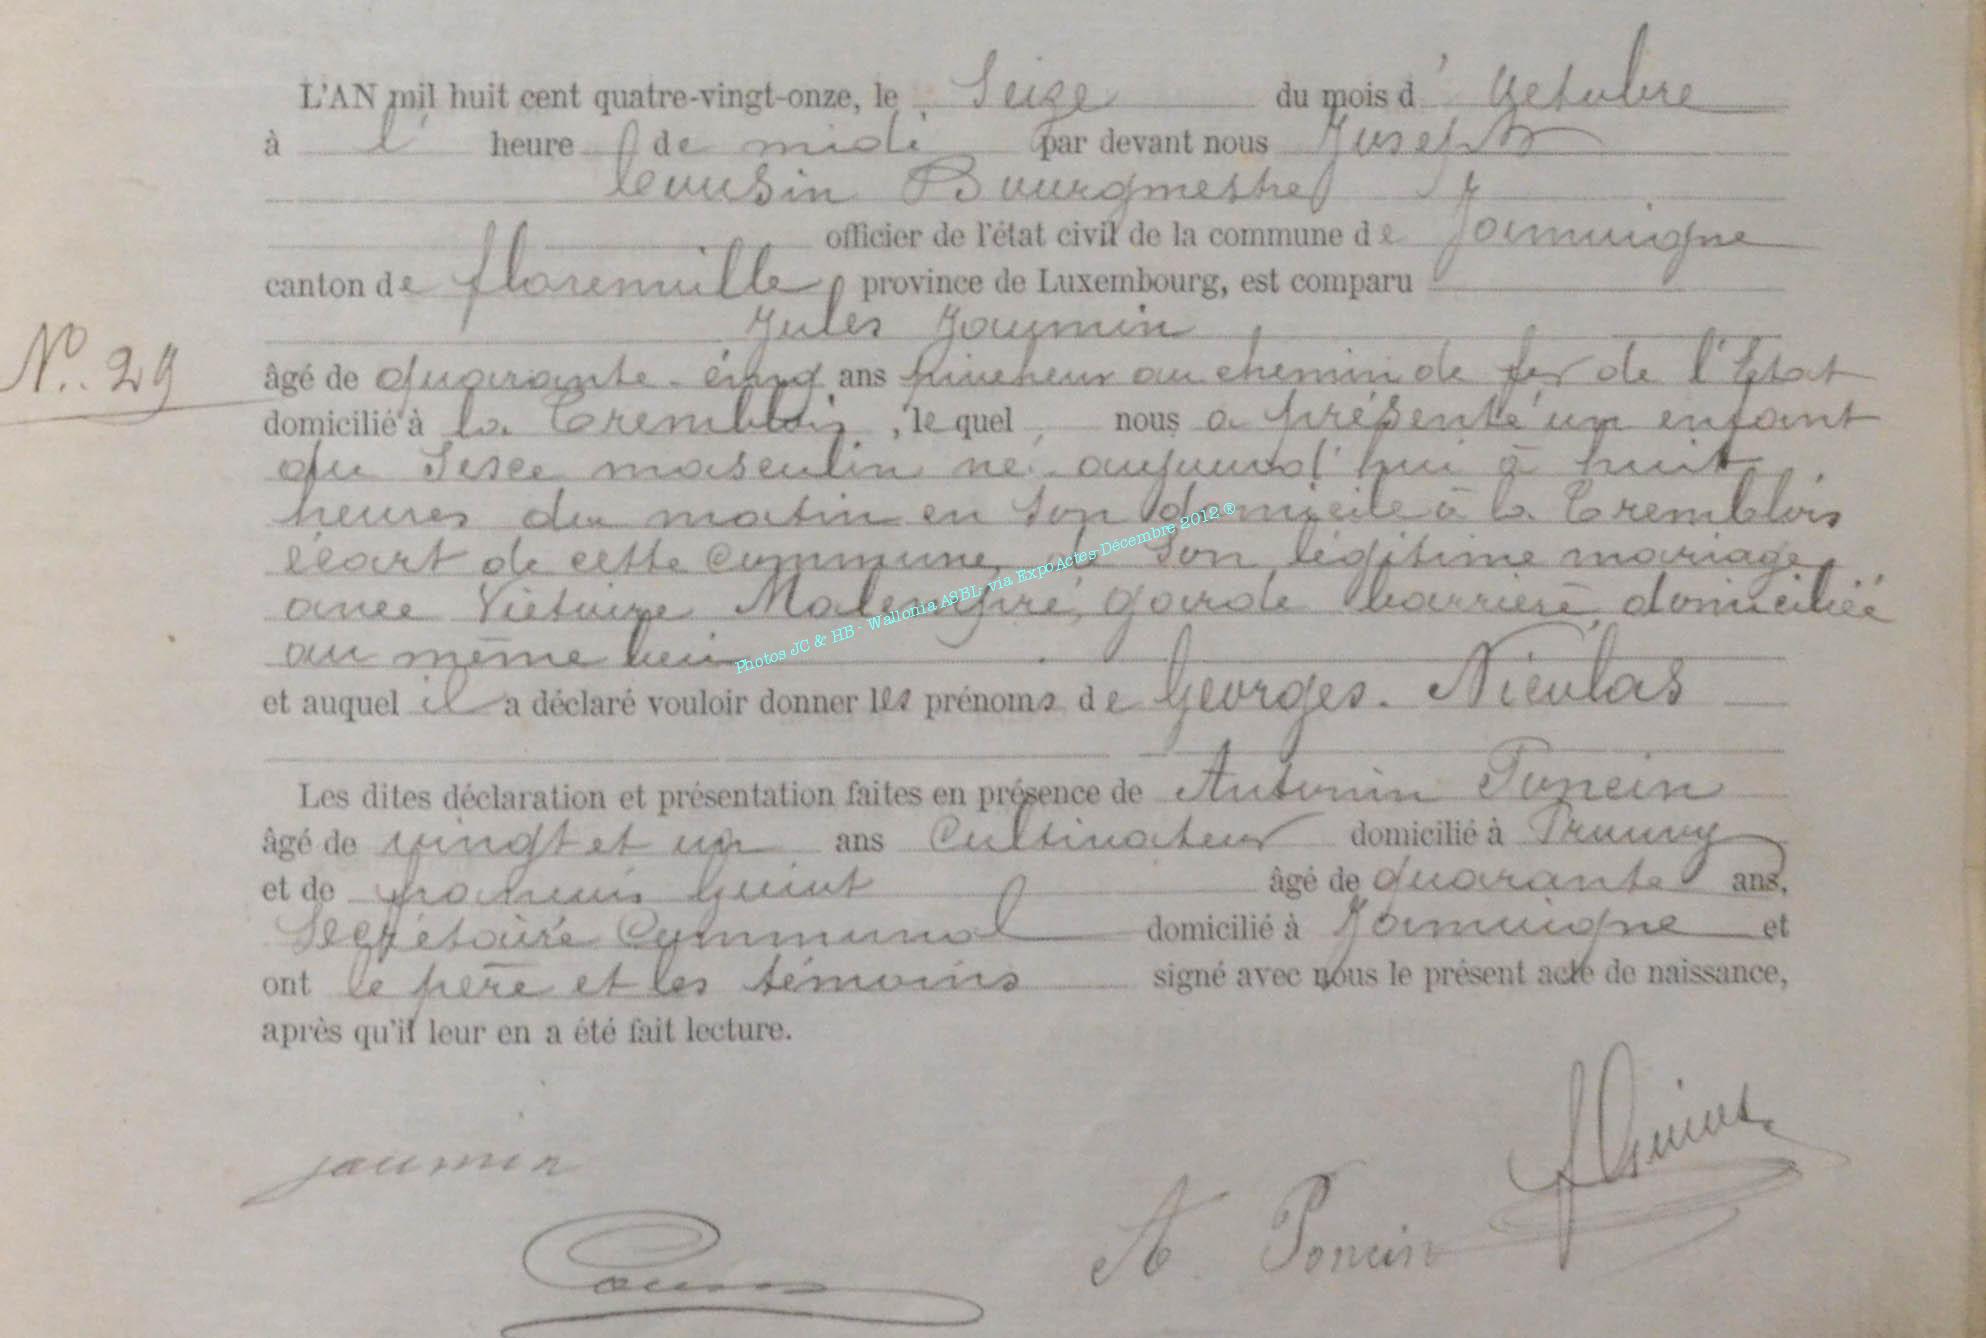 L'AN mil huit cent quatre-vingt-onze, le Seize du mois d'Octobre
à l' heure de midi par devant nous Joseph
Cousin Bourgmestre
officier de l'état civil de la commune de Jamoigne
canton de florenville, province de Luxembourg, est comparu
Jules Jaumin
N°. 29
âgé de quarante-cinq ans piocheur au chemin de fer de l'Etat
domicilié à la Tremblois, lequel, nous a présenté un enfant
du Sexe masculin né aujourd'hui à huit
heures du matin en son domicile à la Tremblois
écart de cette commune, de Son légitime mariage
avec Victoire Malempré, garde barrière, domiciliée
au même lieu
et auquel il a déclaré vouloir donner les prénoms de Georges-Nicolas
Les dites déclaration et présentation faites en présence de Antonin Poncin
âgé de vingt et un ans Cultivateur domicilié à Prouvy
et de françois Guiot âgé de quarante ans,
Secrétaire Communal domicilié à Jamoigne et
ont le père et les témoins signé avec nous le présent acte de naissance,
après qu'il leur en a été fait lecture.
jaumin
A Poncin
Photos JC & HB - Wallonia ASBL via ExpoActes-Décembre 2012 ®